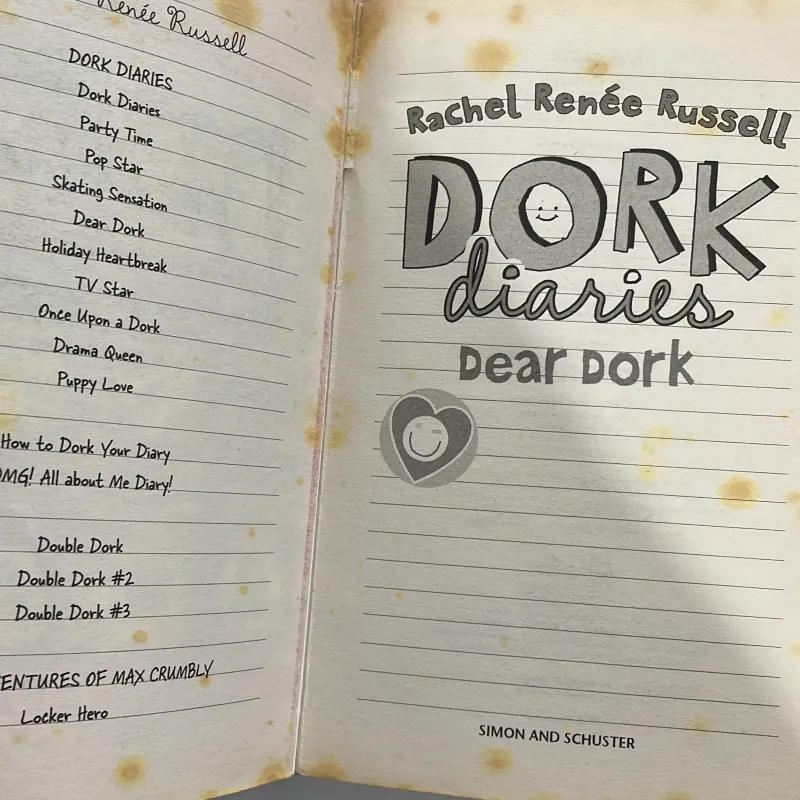 Renée Russell
DORK DIARIES
Dork Diaries
Party Time
Pop Star
Skating Sensation
Dear Dork
Holiday Heartbreak
TV Star
Once Upon a Dork
Drama Queen
Puppy Love
How to Dork Your Diary
OMG! All about Me Diary!
Double Dork
Double Dork #2
Double Dork #3
ENTURES OF MAX CRUMBLY
Locker Hero
Rachel Renée Russell
DORK
diaries
Dear Dork
SIMON AND SCHUSTER